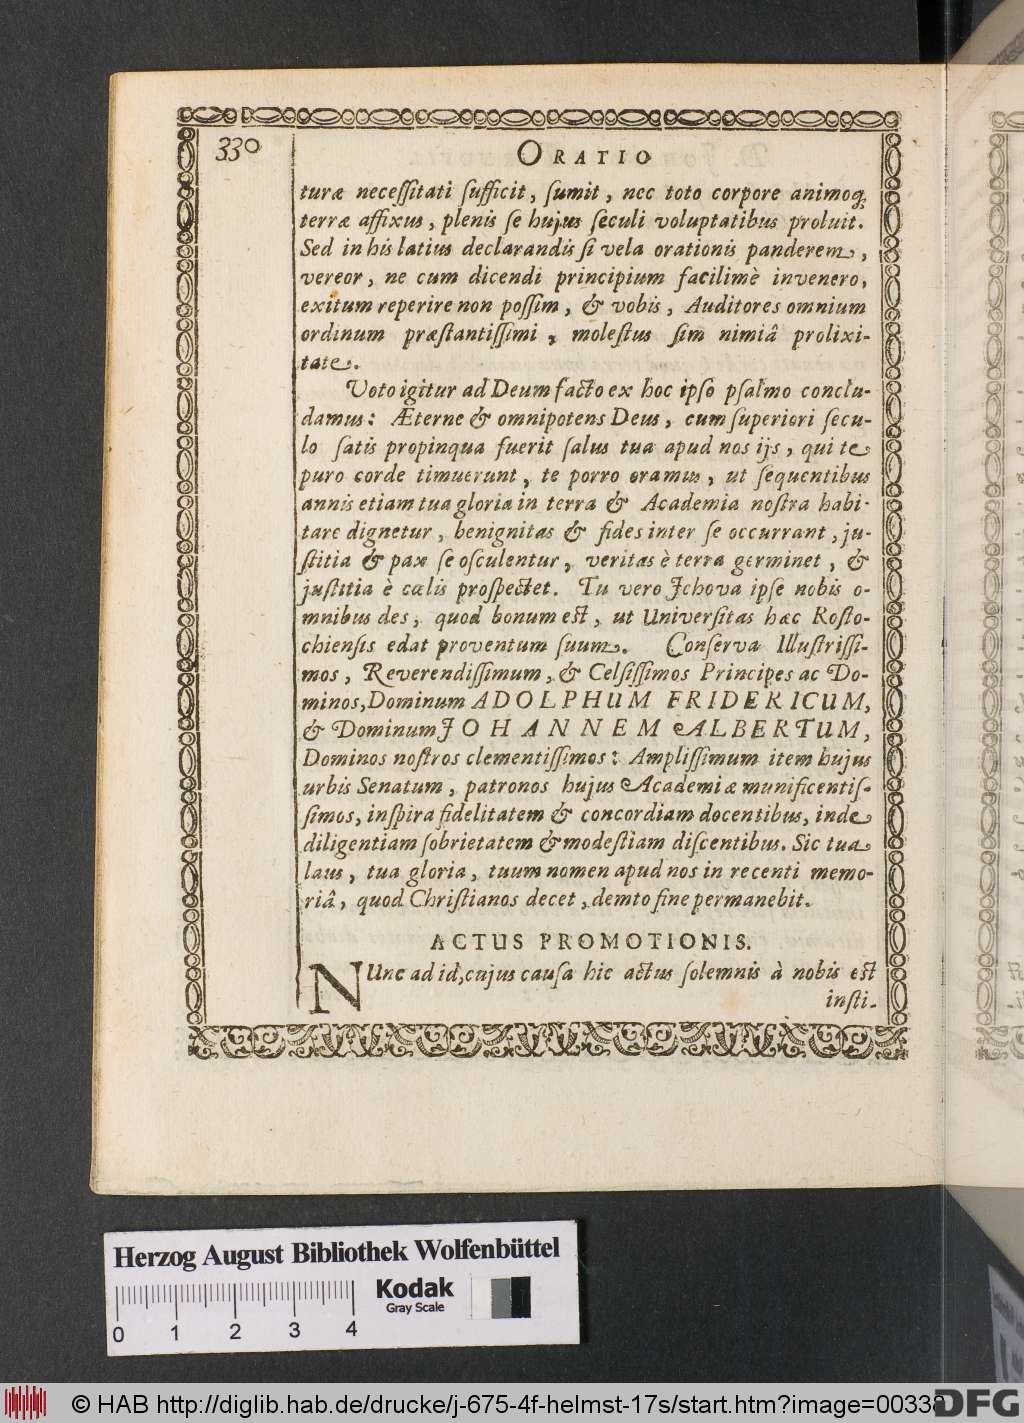 330
ORATIO
turæ necessitati sufficit, sumit, nec toto corpore animoq;
terræ affixus, plenis se hujus seculi voluptatibus proluit.
Sed in his latius declarandis si vela orationis panderem,
vereor, ne cum dicendi principium facilimè invenero,
exitum reperire non possim, & vobis, Auditores omnium
ordinum præstantissimi, molestus sim nimiâ prolixi-
tate.
Voto igitur ad Deum facto ex hoc ipso psalmo conclu-
damus: Æterne & omnipotens Deus, cum superiori secu-
lo satis propinqua fuerit salus tua apud nos ijs, qui te
puro corde timuerunt, te porro oramus, ut sequentibus
annis etiam tua gloria in terra & Academia nostra habi-
tare dignetur, benignitas & fides inter se occurrant, ju-
stitia & pax se osculentur, veritas è terra germinet, &
justitia è cœlis prospectet. Tu vero Jehova ipse nobis o-
mnibus des, quod bonum est, ut Universitas hæc Rosto-
chiensis edat proventum suum. Conserva Illustrissi-
mos, Reverendissimum, & Celsissimos Principes ac Do-
minos, Dominum ADOLPHUM FRIDERICUM,
& Dominum JOHANNEM ALBERTUM,
Dominos nostros clementissimos: Amplissimum item hujus
urbis Senatum, patronos hujus Academiæ munificentis-
simos, inspira fidelitatem & concordiam docentibus, inde
diligentiam sobrietatem & modestiam discentibus. Sic tua
laus, tua gloria, tuum nomen apud nos in recenti memo-
riâ, quod Christianos decet, demto fine permanebit.
ACTUS PROMOTIONIS.
NUnc ad id, cujus causa hic actus solemnis à nobis est
insti-
Herzog August Bibliothek Wolfenbüttel
Kodak
Gray Scale
0 1 2 3 4
© HAB http://diglib.hab.de/drucke/j-675-4f-helmst-17s/start.htm?image=00338
DFG